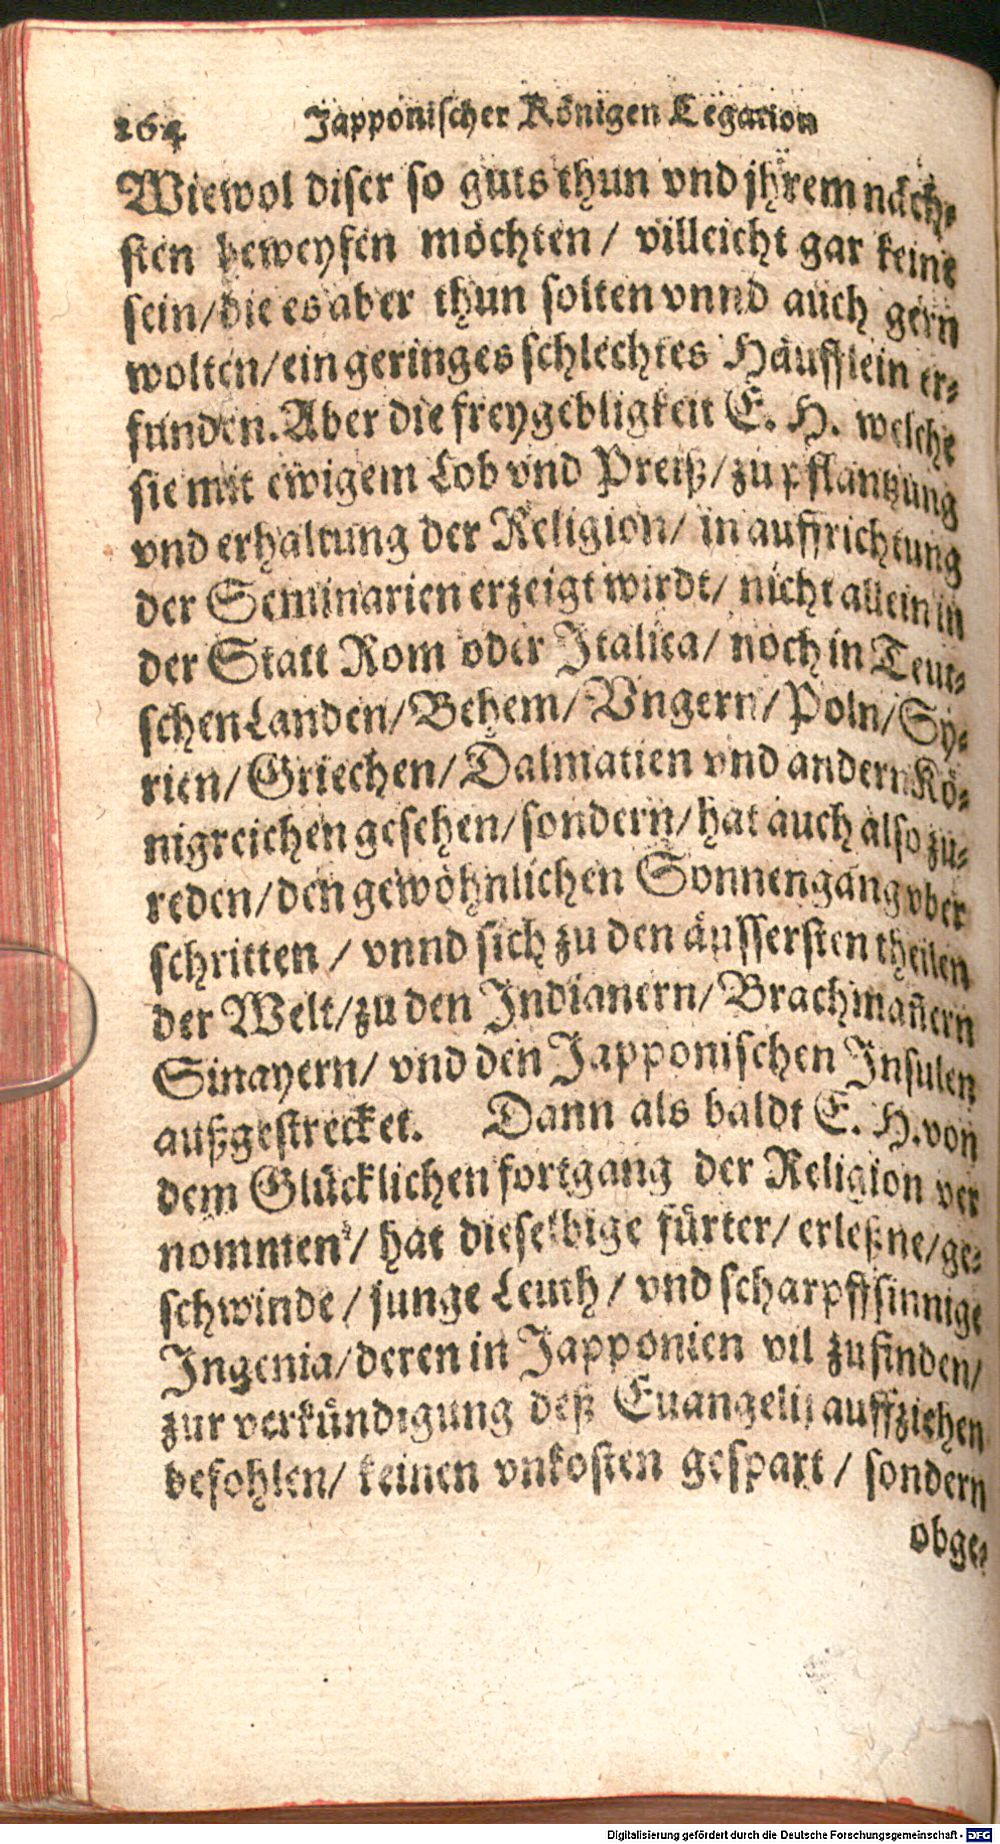 264 Japponischer Königen Legation
Wiewol diser so guts thun vnd jhrem näch-
sten beweysen möchten / villeicht gar keine
sein / die es aber thun solten vnnd auch gern
wolten / ein geringes schlechtes Häufflein er-
funden. Aber die freygebligkeit E. H. welche
sie mit ewigem Lob vnd Preiß / zu pflantzung
vnd erhaltung der Religion / in auffrichtung
der Seminarien erzeigt wirdt / nicht allein in
der Statt Rom oder Italica / noch in Teut-
schen Landen / Behem / Vngern / Poln / Sy-
rien / Griechen / Dalmatien vnd andern Kö-
nigreichen gesehen / sondern / hat auch also zu-
reden / den gewöhnlichen Sonnengang vber
schritten / vnnd sich zu den äussersten theilen
der Welt / zu den Indianern / Brachmañern
Sinayern / vnd den Japponischen Insulen
außgestrecket. Dann als baldt E. H. von
dem Glücklichen fortgang der Religion ver
nommen / hat dieselbige fürter / erleßne / ge-
schwinde / junge Leuth / vnd scharpffsinnige
Ingenia / deren in Japponien vil zufinden /
zur verkündigung deß Euangelij auffziehen
befohlen / keinen vnkosten gespart / sondern
obge-
Digitalisierung gefördert durch die Deutsche Forschungsgemeinschaft - DFG